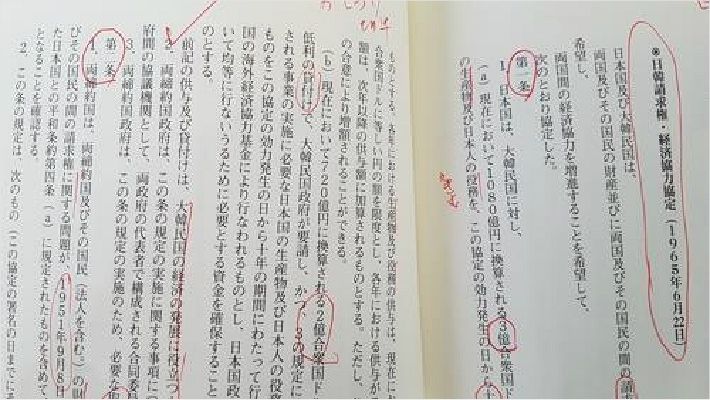 ◉日韓請求権・経済協力協定（１９６５年６月２２日）
日本国及び大韓民国は、
両国及びその国民の財産並びに両国及びその国民の間の請求
希望し、
両国間の経済協力を増進することを希望して、
次のとおり協定した。
第一条
１、日本国は、大韓民国に対し、
（ａ）現在において１０８０億円に換算される３億合衆国ド
の生産物及び日本人の役務を、この協定の効力発生の日から十
ものとする。各年における生産物及び役務の供与は、現在にお
合衆国ドルに等しい円の額を限度とし、各年における供与が
額は、次年以降の供与額に加算されるものとする。ただし、
の合意により増額されることができる。
（ｂ）現在において７２０億円に換算される２億合衆国ド
低利の貸付けで、大韓民国政府が要請し、かつ、３の規定に
される事業の実施に必要な日本国の生産物及び日本人の役務
ものをこの協定の効力発生の日から十年の期間にわたって行
国の海外経済協力基金により行なわれるものとし、日本国政
いて均等に行ないうるために必要とする資金を確保すること
のとする。
前記の供与及び貸付けは、大韓民国の経済の発展に役立つ
２、両締約国政府は、この条の規定の実施に関する事項に
府間の協議機関として、両政府の代表者で構成される合同委
３、両締約国政府は、この条の規定の実施のため、必要な
第二条
１、両締約国は、両締約国及びその国民（法人を含む。）の財
びその国民の間の請求権に関する問題が、１９５１年９月８日
た日本国との平和条約第四条（ａ）に規定されたものを含めて
となることを確認する。
２、この条の規定は、次のもの（この協定の署名の日までにそ